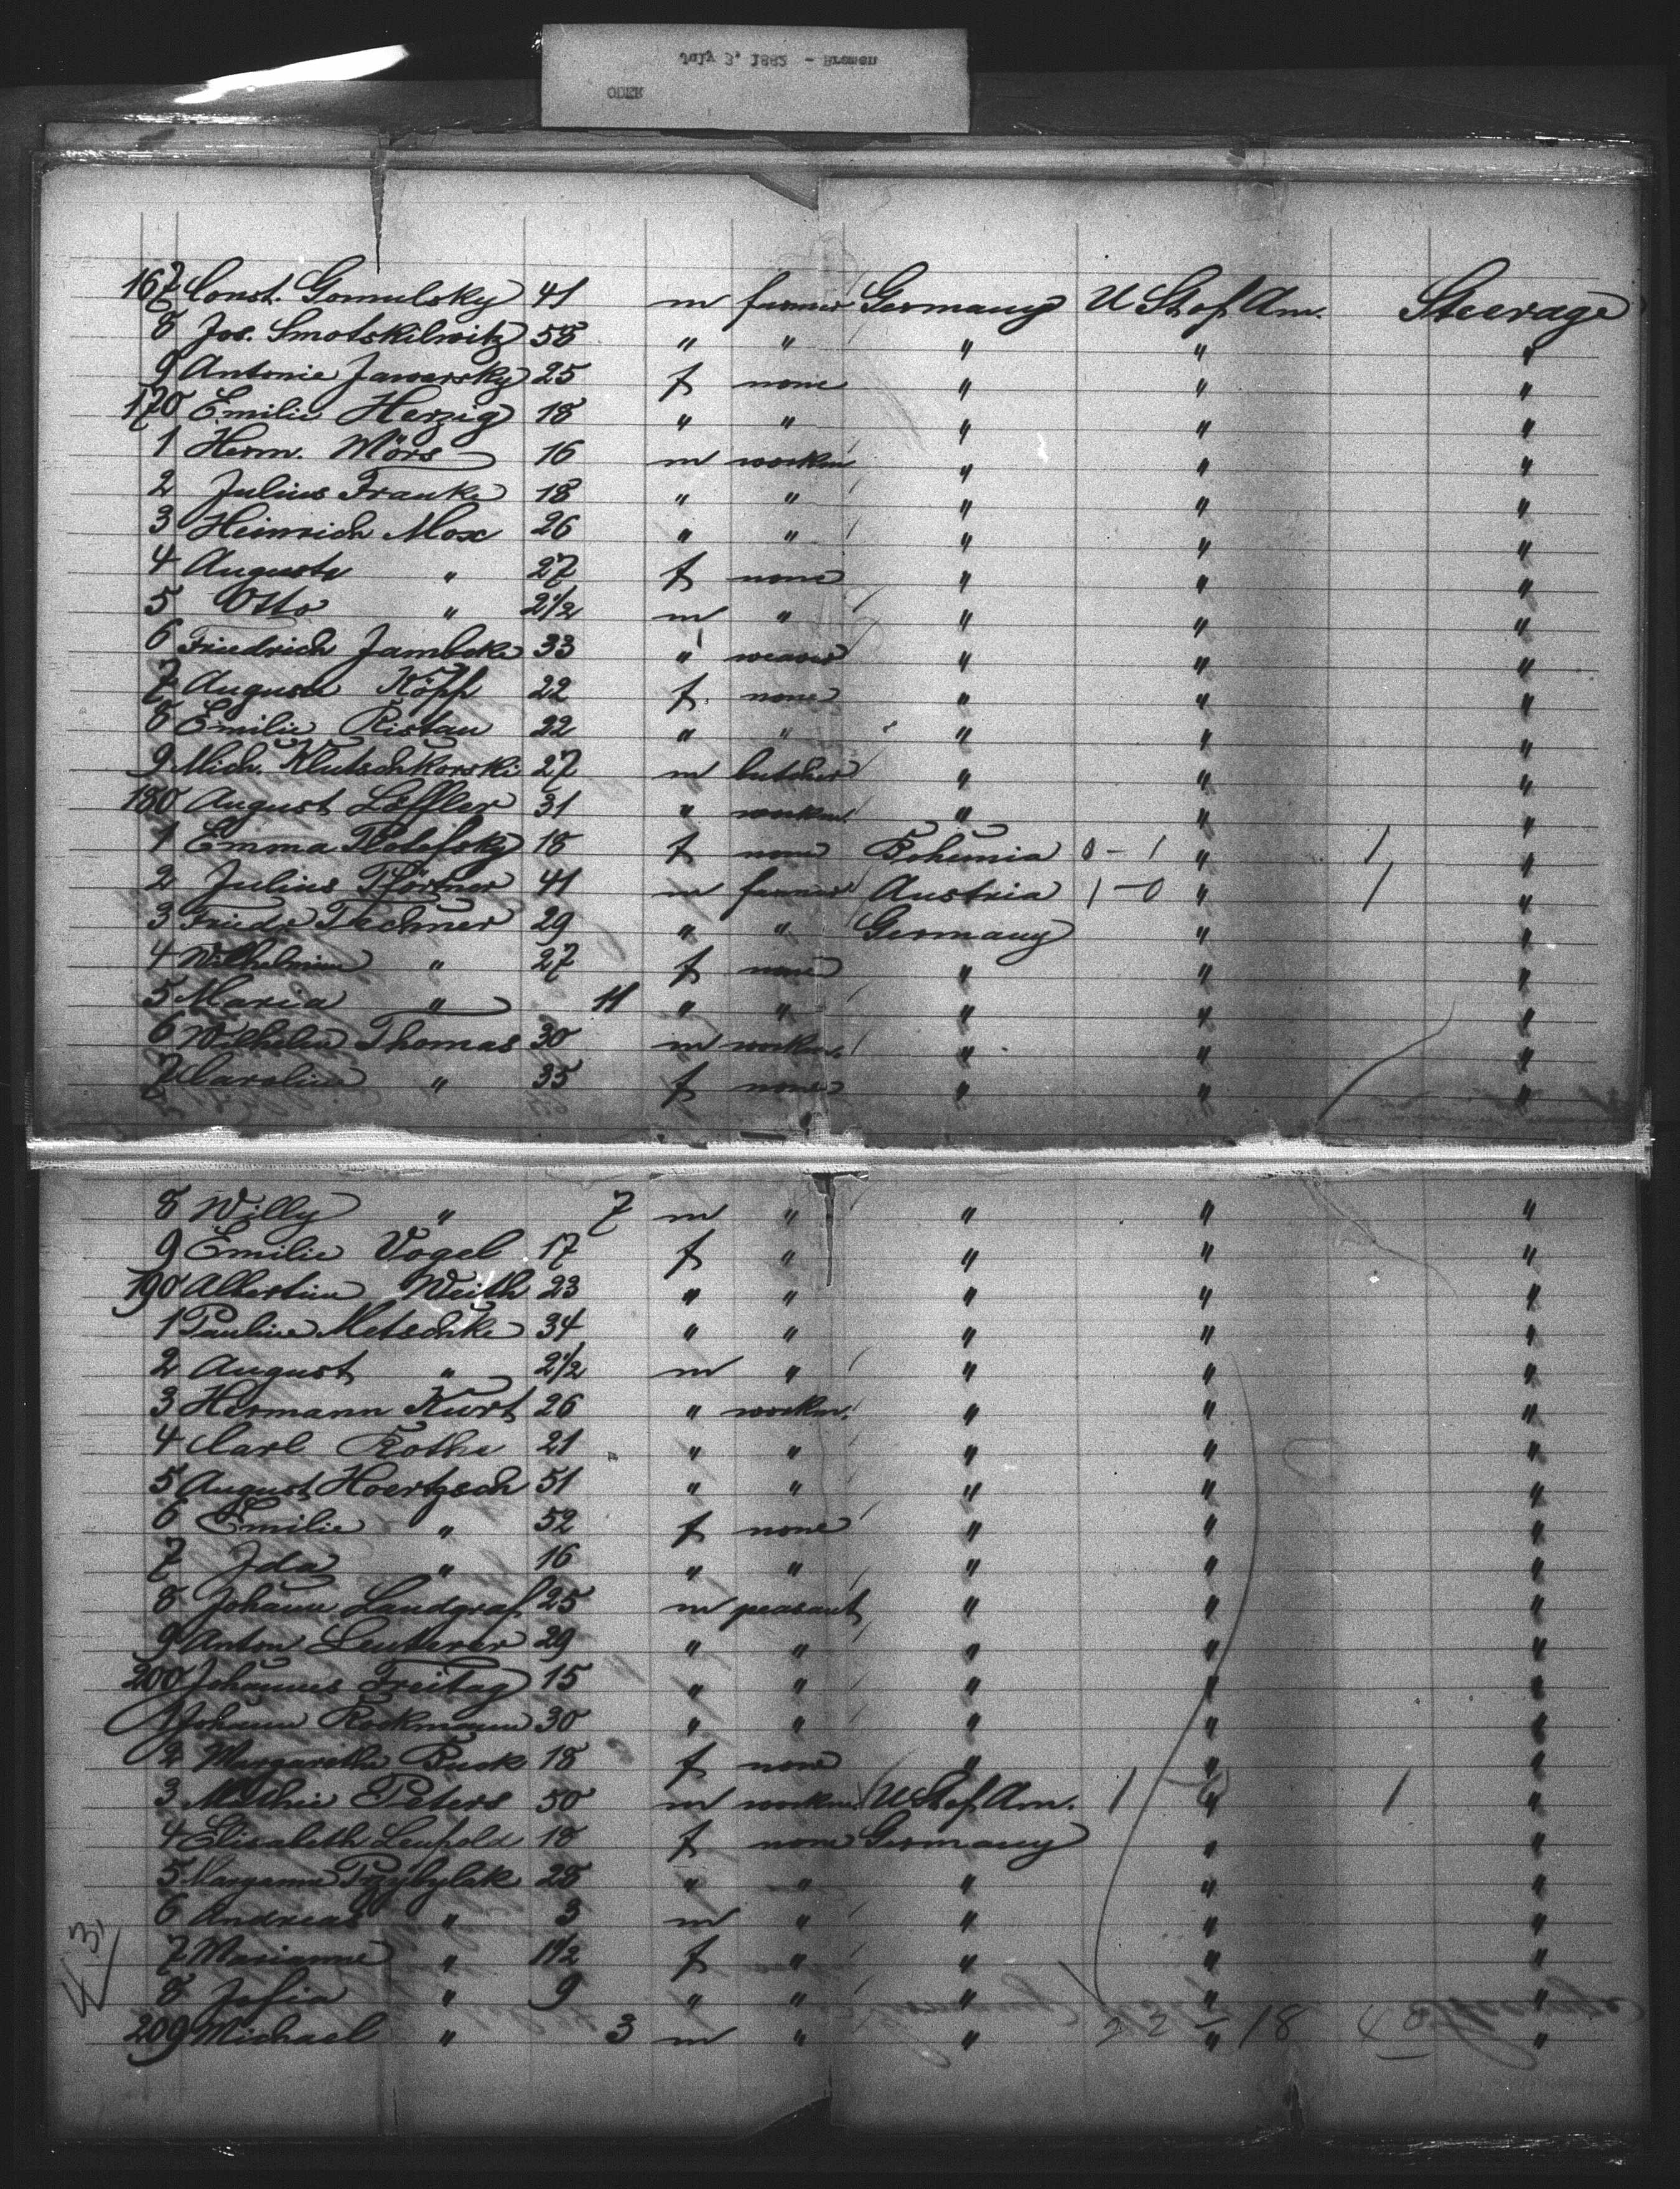 July 3, 1882 - Bremen
ODER
167 Const. Gomulsky 41 m farmer Germany U St of Am. Steerage
8 Jos. Smotskilwitz 58 " " " " "
9 Antonie Jawarsky 25 f none " " "
170 Emilie Herzig 18 " " " " "
1 Herm. Mörs 16 m workm " " "
2 Julius Franke 18 " " " " "
3 Heinrich Mox 26 " " " " "
4 Auguste " 27 f none " " "
5 Otto " 2 1/2 m " " " "
6 Friedrich Jambcke 33 " weaver " " "
7 August Köpp 22 f. none " " "
8 Emilie Ristau 22 " " " " "
9 Mich. Klutschkorski 27 m butcher " " "
180 August Löffler 31 " workm. " " "
1 Emma 18 f none Bohemia 0 - 1 " 1 "
2 Julius Pförtner 41 m farmer Austria 1 - 0 " 1 "
3 Friedr Techner 29 " " Germany " "
4 Wilhelmine " 27 f none " " "
5 Maria " 11 " " " " "
6 Wilhelm Thomas 30 m workm. " " "
7 Caroline " 35 f none " " "
8 Willy " 7 m " " " "
9 Emilie Vogel 17 f " " " "
190 Albertine Weith 23 " " " " "
1 Pauline Metschke 34 " " " " "
2 August " 2 1/2 m " " " "
3 Hermann Kurt 26 " workm. " " "
4 Carl Rothe 21 " " " " "
5 August Hoertzsch 51 " " " " "
6 Emilie " 52 f none " " "
7 Ida " 16 " " " " "
8 Johann Landgraf 25 m peasant " " "
9 Anton Leuterer 29 " " " " "
200 Johannes Freitag 15 " " " " "
1 Johann Rockmann 30 " " " " "
2 Margarethe Buck 18 f none " " "
3 Peters 50 m workm. U St of Am. 1 " 1 "
4 Elisabeth Leupold 18 f none Germany " "
5 Maryanna Przybylak 28 " " " " "
6 Andreas " 3 m " " " "
7 Marianne " 1 1/2 f " " " "
8 Jofia " 9 " " " " "
209 Michael " 3 m " " 22 - 18 " 40 "